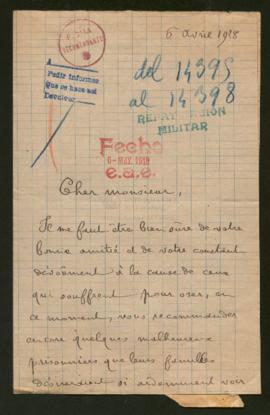 6 avril 1918
del 14395
al 14398
MILITAR
Pedir informes
Que se hace así
Fecho
6-MAY. 1918
e.a.e.
Cher monsieur,
Il me faut être bien sûre de votre
bonne amitié et de votre constant
dévouement à la cause de ceux
qui souffrent pour oser, en
ce moment, vous recommander
encore quelques malheureux
prisonniers que leurs familles
désireraient si ardemment voir